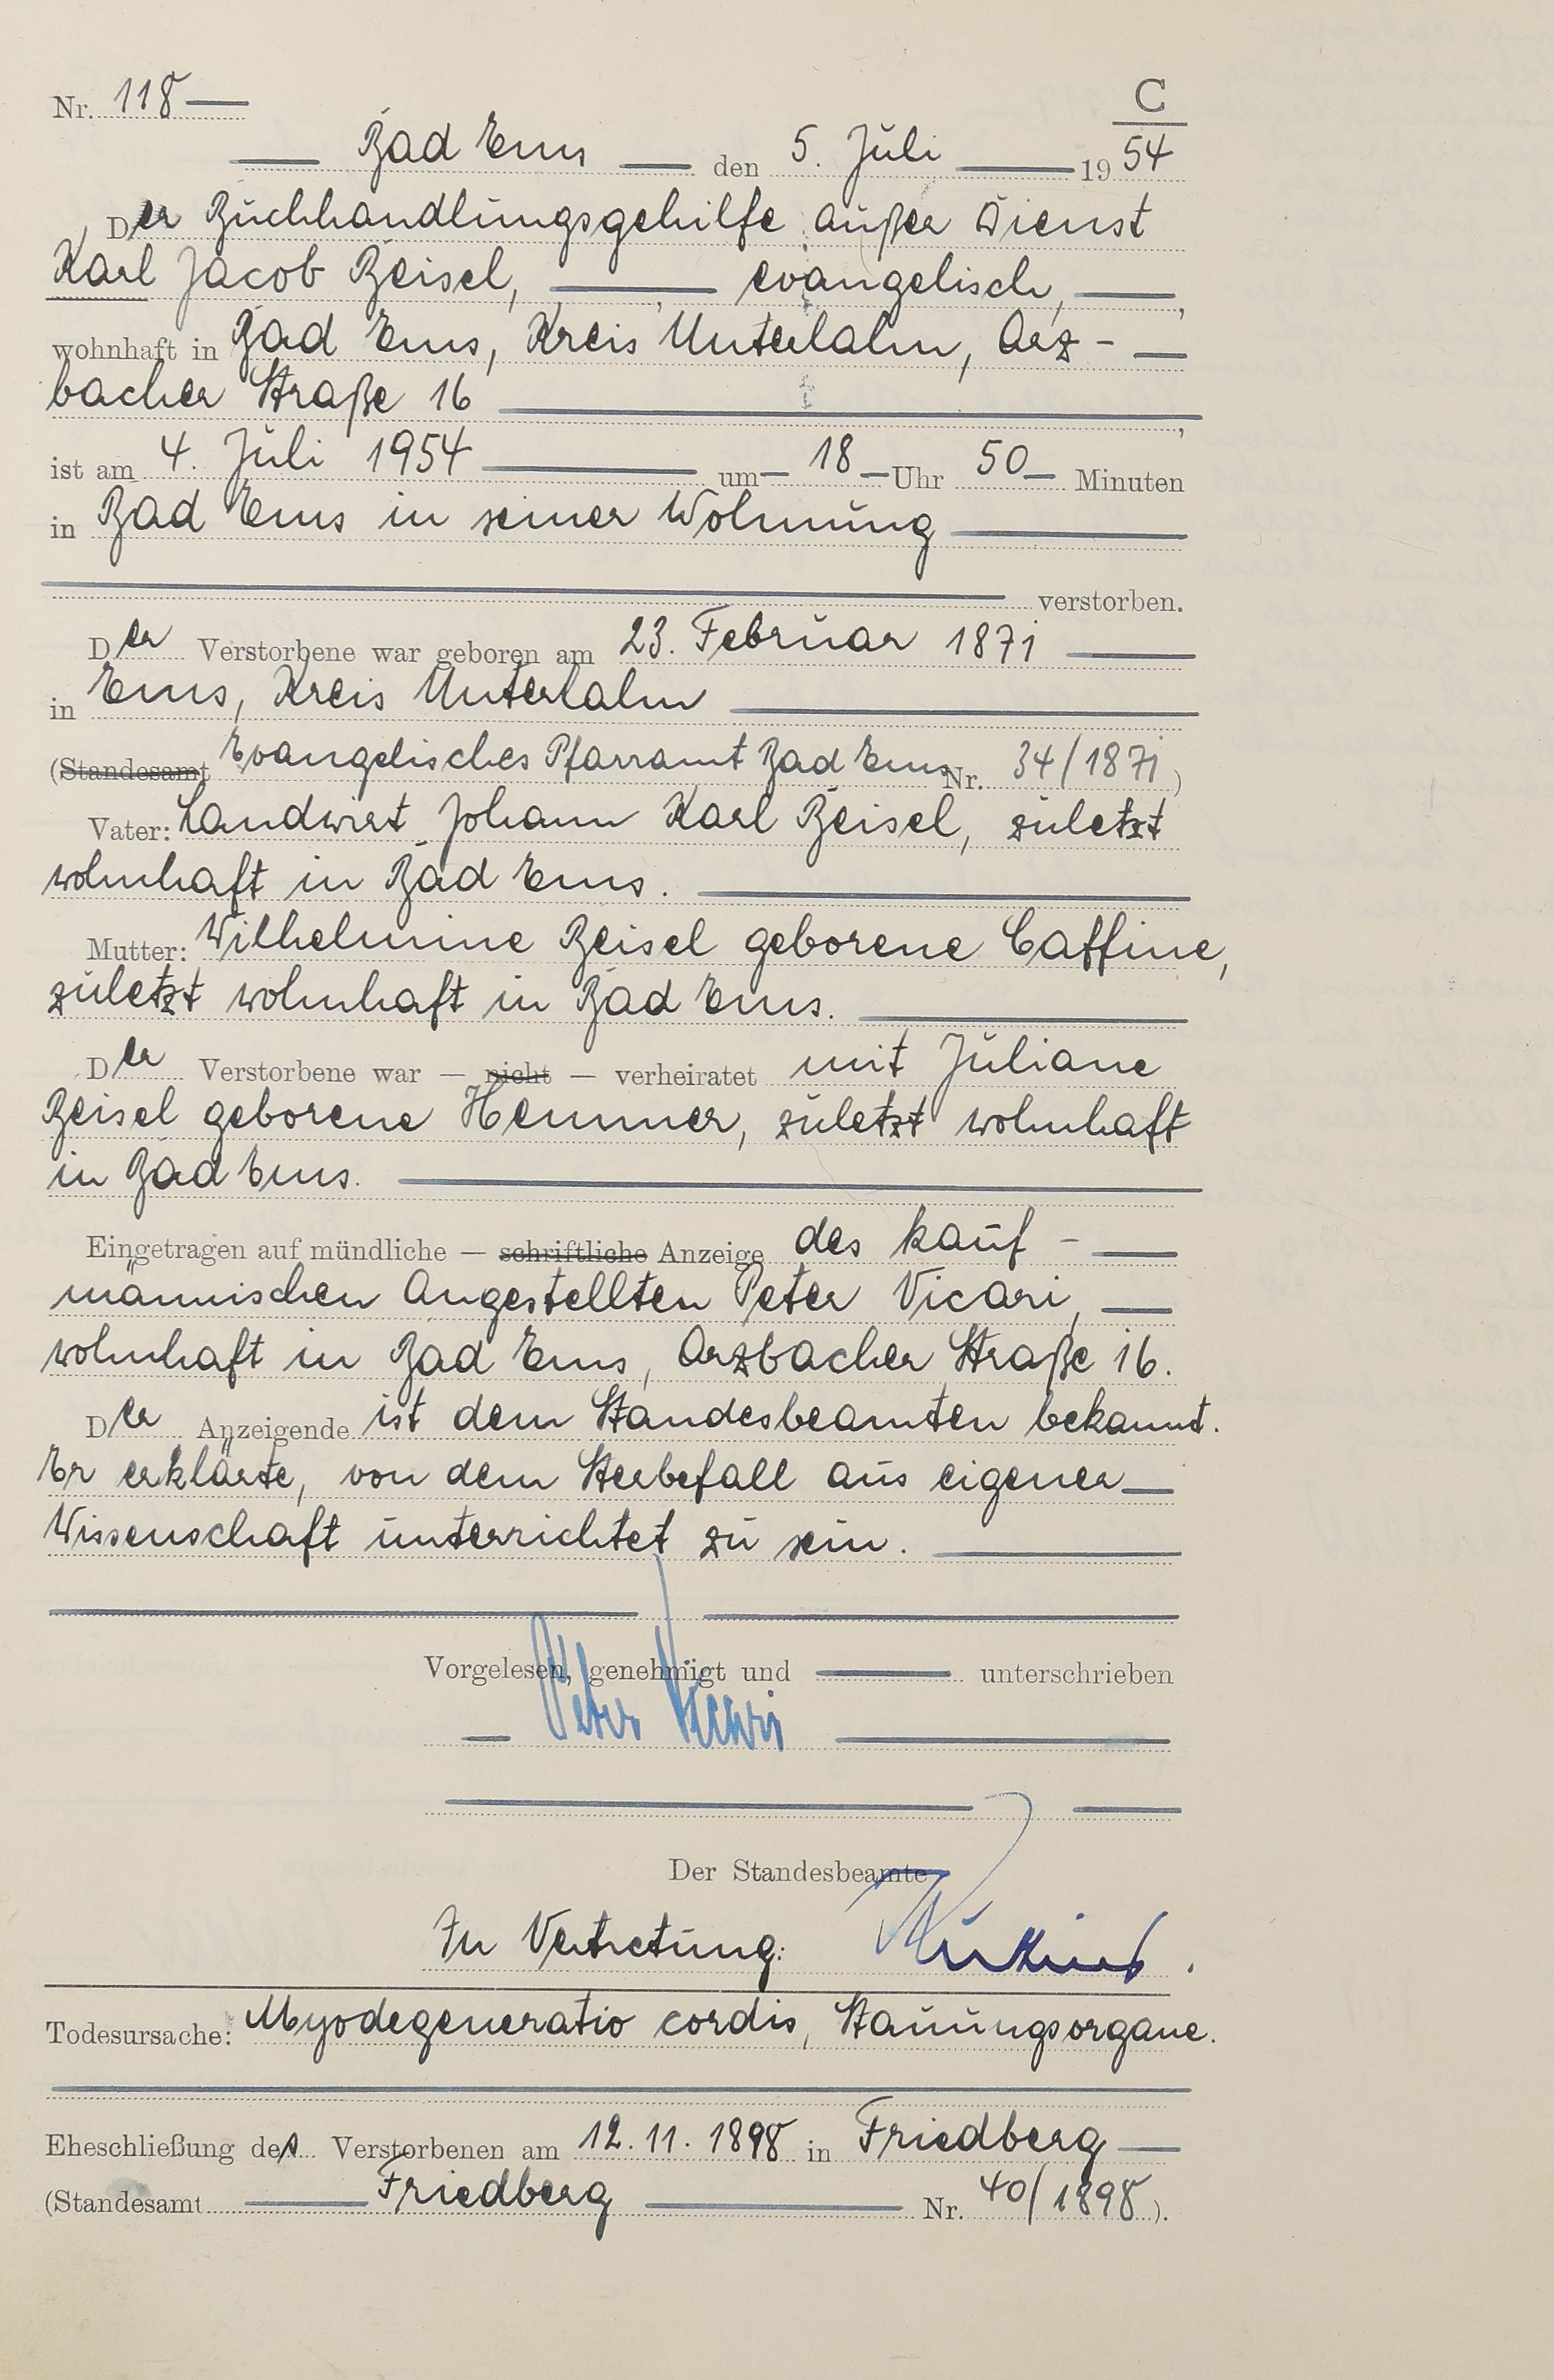 Nr. 118
C
Bad Ems den 5. Juli 1954
Der Buchhandlungsgehilfe außer Dienst
Karl Jacob Beisel, evangelisch,
wohnhaft in Bad Ems, Kreis Unterlahn, Arz-
bacher Straße 16,
ist am 4. Juli 1954 um 18 Uhr 50 Minuten
in Bad Ems in seiner Wohnung
verstorben.
Der Verstorbene war geboren am 23. Februar 1871
in Ems, Kreis Unterlahn
(Standesamt Evangelisches Pfarramt Bad Ems Nr. 34/1871)
Vater: Landwirt Johann Karl Beisel, zuletzt
wohnhaft in Bad Ems.
Mutter: Wilhelmine Beisel geborene Caffine,
zuletzt wohnhaft in Bad Ems.
Der Verstorbene war — nicht — verheiratet mit Juliane
Beisel geborene Hemmer, zuletzt wohnhaft
in Bad Ems.
Eingetragen auf mündliche — schriftliche Anzeige des kauf-
männischen Angestellten Peter Vicari,
wohnhaft in Bad Ems, Arzbacher Straße 16.
Der Anzeigende ist dem Standesbeamten bekannt.
Er erklärte, von dem Sterbefall aus eigener
Wissenschaft unterrichtet zu sein.
Vorgelesen, genehmigt und unterschrieben
Peter Vicari
Der Standesbeamte
In Vertretung:
Todesursache: Myodegeneratio cordis, Stauungsorgane.
Eheschließung des Verstorbenen am 12.11.1898 in Friedberg
(Standesamt Friedberg Nr. 40/1898).